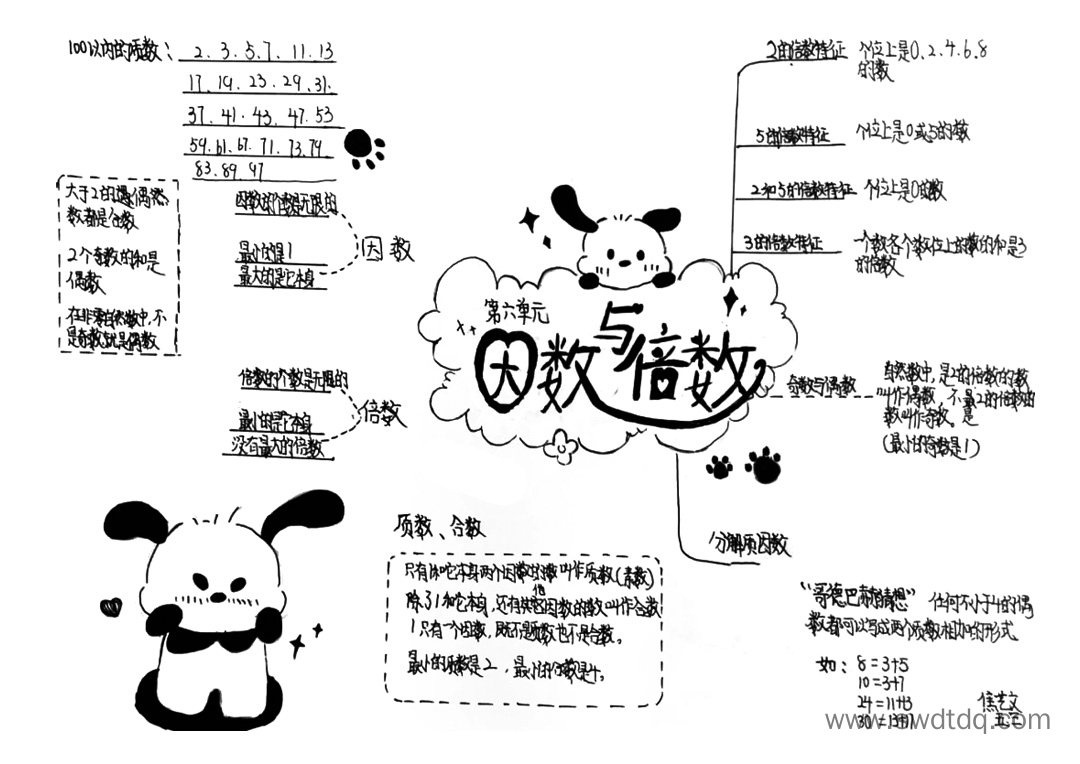 100以内的质数: 2、3、5、7、11、13
17、19、23、29、31、
37、41、43、47、53
59、61、67、71、73、79
83、89、97
大于2的偶
数都是合数
2个奇数的和是
偶数
在非零自然数中,不
是奇数就是偶数
因数的个数是无限的
最小的是1
最大的是它本身
因数
倍数的个数是无限的
最小的是它本身
没有最大的倍数
倍数
第六单元
因数与倍数
2的倍数特征 个位上是0、2、4、6、8
的数
5的倍数特征 个位上是0或5的数
2和5的倍数特征 个位上是0的数
3的倍数特征 一个数各个数位上的数的和是3
的倍数
奇数与偶数
自然数中,是2的倍数的数
叫作偶数,不是2的倍数的
数叫作奇数。是
(最小的奇数是1)
分解质因数
质数、合数
只有1和它本身两个因数的数叫作质数(素数)
除了1和它本身,还有其它因数的数叫作合数
1只有一个因数,既不是质数也不是合数。
最小的质数是2,最小的合数是4。
"哥德巴赫猜想" 任何不小于4的偶
数都可以写成两个质数相加的形式
如: 8=3+5
10=3+7
24=11+13
30=13+17
焦艺文
www.swdtdq.com